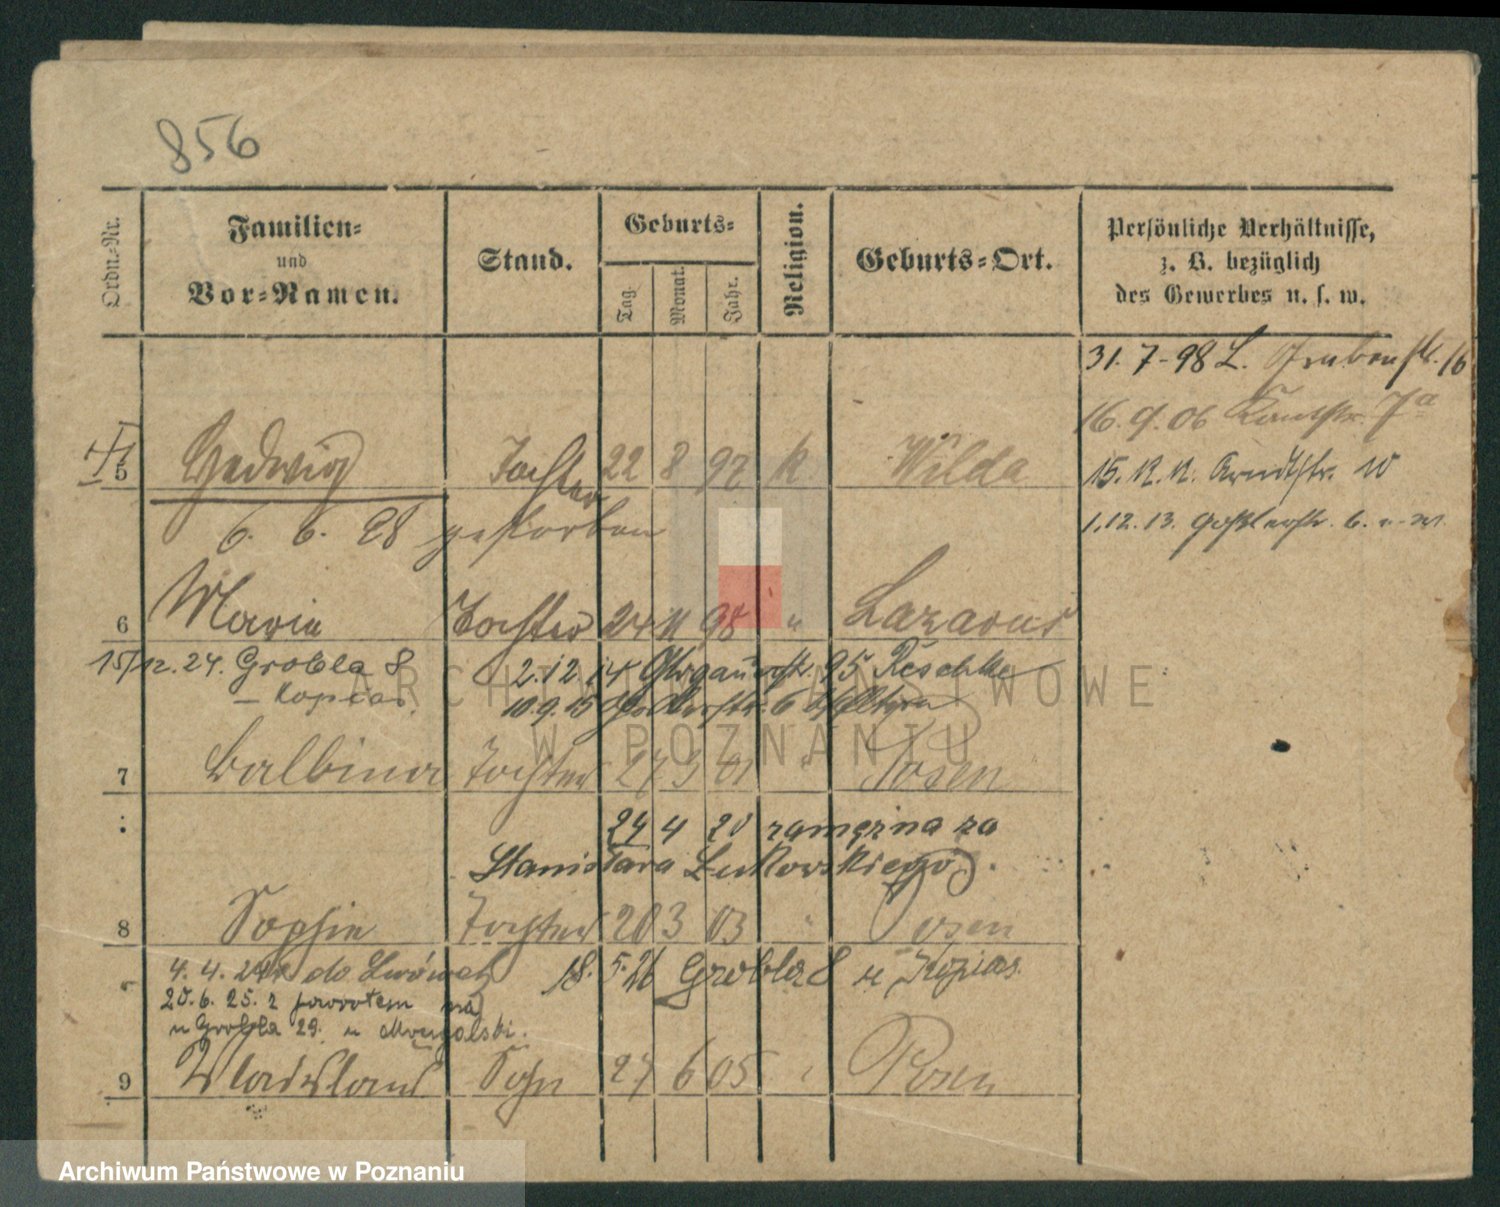 856
Ordn.-Nr.
Familien-
und
Vor-Namen.
Stand.
Geburts-
Tag.
Monat.
Jahr.
Religion.
Geburts-Ort.
Persönliche Verhältnisse,
z. B. bezüglich
des Gewerbes u. s. w.
31. 7-98 L. Grabenstr. 16
16. 9. 06 Kantstr. 7a
5 Hedwig Tochter 22 8 97 k Wilda
15. 12. 12. Arndtstr. 10
6. 6. 98 gestorben
1.12. 13. Goßlerstr. 6.
6 Marie Tochter 24 11 98 " Lazarus
15/12. 24. Grobla 8
2.12.14 95 Reschke
– Kopias.
10.9.15 6
7 Balbina Tochter 27 3 01 " Posen
24 4 20 zamężna za
Stanisława Lutkowskiego.
8 Sophie Tochter 20 3 03 " Posen
4. 4. 24 do Lwówek
18. 5. 26 Grobla 8 u Kopias.
20. 6. 25. z powrotem
u Grobla 29. u
9 Wladislaus Sohn 27 6 05 " Posen
ARCHIWUM PAŃSTWOWE
W POZNANIU
Archiwum Państwowe w Poznaniu